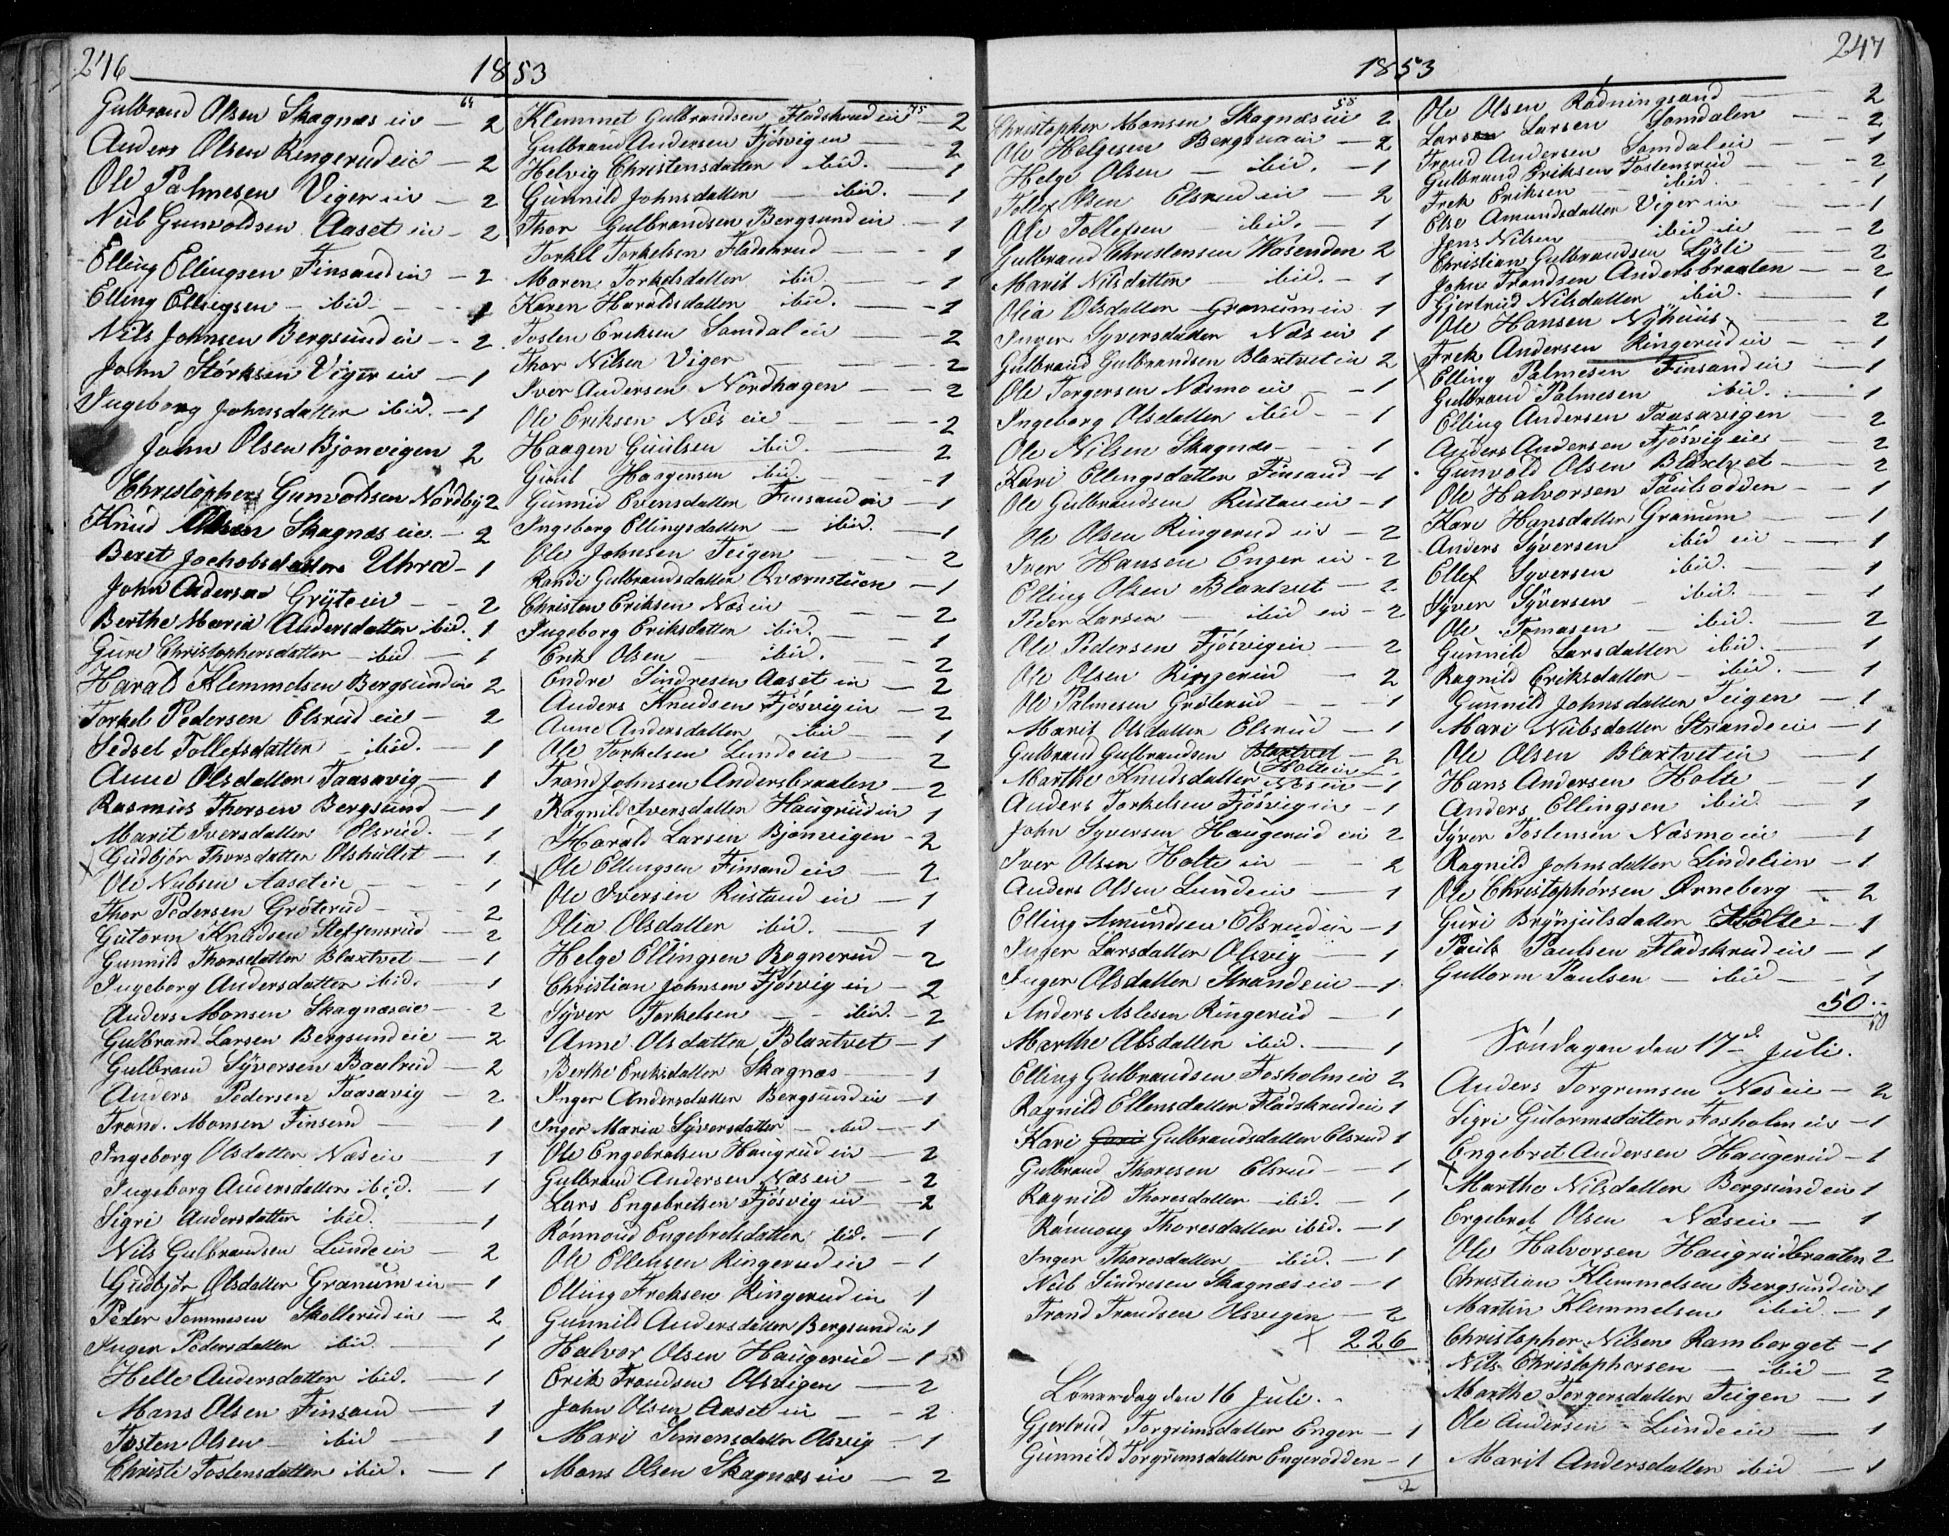 246
1853
64
Gulbrand Olsen Skagnæs eie — 2
Anders Olsen Ringerud eie — 2
Ole Palmesen Viger eie — 2
Niels Gunvoldsen Aaset eie — 2
Elling Ellingsen Finsand eie — 2
Elling Ellingsen — ibid — 1
Nils Johnsen Bergsund eie — 2
John Störksen Viger eie — 1
Ingeborg Johnsdatter ibid. — 1
John Olsen Bjonvigen 2
Christopher Gunvoldsen Nordby 2
Knud Olsen Skagnæs eie — 2
Beret Jochobsdatter Uhra — 1
John Andersen Gryte eie — 2
Berthe Maria Andersdatter ibid. 1
Gure Christophersdatter — ibid — 1
Harald Klemmetsen Bergsund eie 2
Torkel Pedersen Elsrud eie — 2
Sedsel Tollefsdatter — ibid. — 1
Anne Olsdatter Taasavig — 1
Rasmus Thorsen Bergsund — 1
Marit Iversdatter Elsrud — 1
Gudbjör Thorsdatter Olshullet — 1
Ole Nielsen Aaset eie — 1
Thor Pedersen Gröterud — 2
Gutorm Knudsen Steffensrud — 2
Gunnild Thorsdatter Blaxtvet — 1
Ingeborg Andersdatter ibid. — 1
Anders Monsen Skagnæs eie — 2
Gulbrand Larsen Bergsund eie — 2
Gulbrand Syversen Baalrud — 2
Anders Pedersen Taasavig — 2
Trond Monsen Finsand — 1
Ingeborg Olsdatter Næs eie — 1
Ingeborg Andersdatter ibid. — 1
Sigri Andersdatter ibid. — 1
Nils Gulbrandsen Lunde eie — 2
Gudbjör Olsdatter Granum eie — 1
Peder Tommesen Skollerud eie — 2
Inger Pedersdatter ibid — 1
Helle Andersdatter ibid. — 1
Mons Olsen Finsand — 1
Tosten Olsen — ibid — 1
Christi Tostensdatter ibid. — 1
75
Klemmet Gulbrandsen Fladskrud eie — 2
Gulbrand Andersen Fjösvig eie — 2
Helvig Christensdatter ibid. — 1
Gunnild Johnsdatter — ibid. — 1
Thor Gulbrandsen Bergsund eie — 1
Torkel Torkelsen Fladskrud — 1
Maren Torkelsdatter ibid. — 1
Karen Haraldsdatter ibid. — 1
Tosten Eriksen Somdal eie — 2
Thor Nilsen Viger — 2
Iver Andersen Nordhagen — 2
Ole Eriksen Næs eie — 2
Haagen Guulsen ibid. — 2
Guul Haagensen ibid. — 1
Gunnild Evensdatter Finsand eie — 1
Ingeborg Ellingsdatter — ibid. — 1
Ole Johnsen Teigen — 2
Randi Gulbrandsdatter Qværnstuen — 1
Christen Eriksen Næs eie — 2
Ingeborg Eriksdatter ibid. — 1
Erik Olsen — ibid. — 2
Endre Sindresen Aaset eie — 2
Anders Knudsen Fjösvig eie — 2
Anne Andersdatter ibid — 1
Ole Torkelsen Lunde eie — 2
Trond Johnsen Andersbraaten — 2
Ragnild Iversdatter Haugrud eie 1
Harald Larsen Bjonvigen — 2
Ole Ellingsen Finsand eie — 2
Ole Iversen Rustand eie — 1
Olia Olsdatter ibid. — 1
Helge Ellingsen Rognerud — 2
Christian Johnsen Fjösvig eie — 2
Syver Torkelsen — ibid. — 2
Anne Olsdatter Blaxtvet — 1
Berthe Eriksdatter Skagnæs — 1
Inger Andersdatter Bergsund eie — 1
Inger Maria Syversdatter — ibid — 1
Ole Engebretsen Haugrud eie — 2
Gulbrand Andersen Næs eie — 2
Lars Engebretsen Fjösvig eie — 2
Rönnoug Engebretsdatter ibid. — 1
Ole Ellensen Ringerud eie — 1
Elling Freksen Ringerud eie 1
Gunnild Andersdatter Bergsund eie 1
Halvor Olsen Haugerud — 1
Erik Trondsen Olsvigen — 2
John Olsen Aaset eie — 2
Mari Simensdatter Olsvig — 1
Mons Olsen Skagnæs eie — 2
1853
247
58
Christopher Monsen Skagnæs eie 2
Ole Helgesen Bergsund eie — 2
Helge Olsen — ibid. — 1
Tollef Olsen Elsrud eie — 2
Ole Tollefsen — ibid. — 1
Gulbrand Christensen Wasenden 2
Marit Nilsdatter — ibid. — 1
Olia Olsdatter Granum eie 1
Inger Syversdatter Næs eie 1
Gulbrand Gulbrandsen Blaxtvet eie 2
Ole Torgersen Næsmo eie — 1
Ingeborg Olsdatter ibid — 1
Ole Nilsen Skagnæs — 1
Kari Ellingsdatter Finsand — 1
Ole Gulbrandsen Rustan eie — 1
Ole Olsen Ringerud eie — 2
Iver Hansen Enger eie — 2
Elling Olsen Blaxtvet — 2
Peder Larsen — ibid eie — 2
Ole Pedersen Fjösvig eie — 2
Ole Olsen Ringerud — 2
Ole Palmesen Gröterud — 1
Marit Olsdatter Elsrud — 1
Gulbrand Gulbrandsen Blaxtvet Holte eie — 2
Marthe Knudsdatter Næs eie — 1
Anders Torkelsen Fjösvig eie — 1
John Syversen Haugerud eie 2
Iver Olsen Holte eie — 2
Anders Olsen Lunde eie — 1
Elling Amundsen Elsrud eie — 1
Inger Larsdatter Olsvig — 1
Inger Olsdatter Strande eie — 1
Anders Aslesen Ringerud — 1
Marthe Olsdatter ibid. — 1
Elling Gulbrandsen Fosholm eie 2
Ragnild Ellensdatter Fladskrud eie 1
Kari Guri Gulbrandsdatter Elsrud 1
Gulbrand Thoresen Elsrud — 1
Ragnild Thoresdatter ibid. — 1
Rönnoug Thoresdatter ibid. — 1
Inger Thoresdatter ibid. — 1
Niels Sindresen Skagnæs eie — 1
Trond Trondsen Olsvigen — 2
226
Löverdag den 16 Juli.
Gjertrud Torgrimsdatter Enger — 1
Gunnild Torgrimsdatter Engerodden — 1
2
Ole Olsen Rödningsand — 2
Lars Larsen Somdalen — 2
Trond Andersen Somdal eie — 1
Gulbrand Eriksen Tostensrud — 2
Frek Eriksen — ibid. — 1
Else Amundsdatter Viger eie — 1
Jens Nilsen — ibid eie — 2
Christian Gulbrandsen Lysli — 2
John Trondsen Andersbraaten — 2
Gjertrud Nilsdatter ibid. — 1
Ole Hansen Nyhuus — 2
Frek Andersen Ringerud eie — 1
Elling Palmesen Finsand eie — 1
Gulbrand Palmesen ibid. — 1
Elling Andersen Taasavigen — 2
Anders Andersen Fjösvig eie — 2
Gunvold Olsen Blaxtvet — 2
Ole Halvorsen Paulsodden — 1
Kari Hansdatter Granum — 1
Anders Syversen ibid eie — 1
Ellef Syversen ibid. — 1
Syver Syversen — ibid. — 1
Ole Tomasen — ibid. — 2
Gunnild Larsdatter ibid. — 1
Ragnild Eriksdatter — ibid. — 1
Gunnild Johnsdatter Teigen — 1
Mari Nielsdatter Strande eie — 1
Ole Olsen Blaxtvet eie — 1
Hans Andersen Holte 1
Anders Ellingsen ibid. — 1
Syver Tostensen Næsmo eie — 1
Ragnild Johnsdatter Lindelien — 1
Ole Christophersen Ørneberg — 2
Guri Brynjulsdatter Holte — 1
Paul Paulsen Fladskrud eie — 1
Guttorm Paulsen — ibid — 1
50
Söndagen den 17de Juli.
Anders Torgrimsen Næs eie — 2
Sigri Gutormsdatter Fosholm eie — 1
Engebret Andersen Haugerud — 1
Marthe Nilsdatter Bergsund eie 1
Engebret Olsen Næs eie — 1
Ole Halvorsen Haugrudbraaten 2
Christian Klemmetsen Bergsund eie 1
Martin Klemmetsen ibid — 1
Christopher Nilsen Ramberget — 1
Nils Christophersen — ibid — 2
Marthe Torgersdatter Teigen — 1
Ole Andersen — Lunde eie — 1
Marit Andersdatter ibid — 1